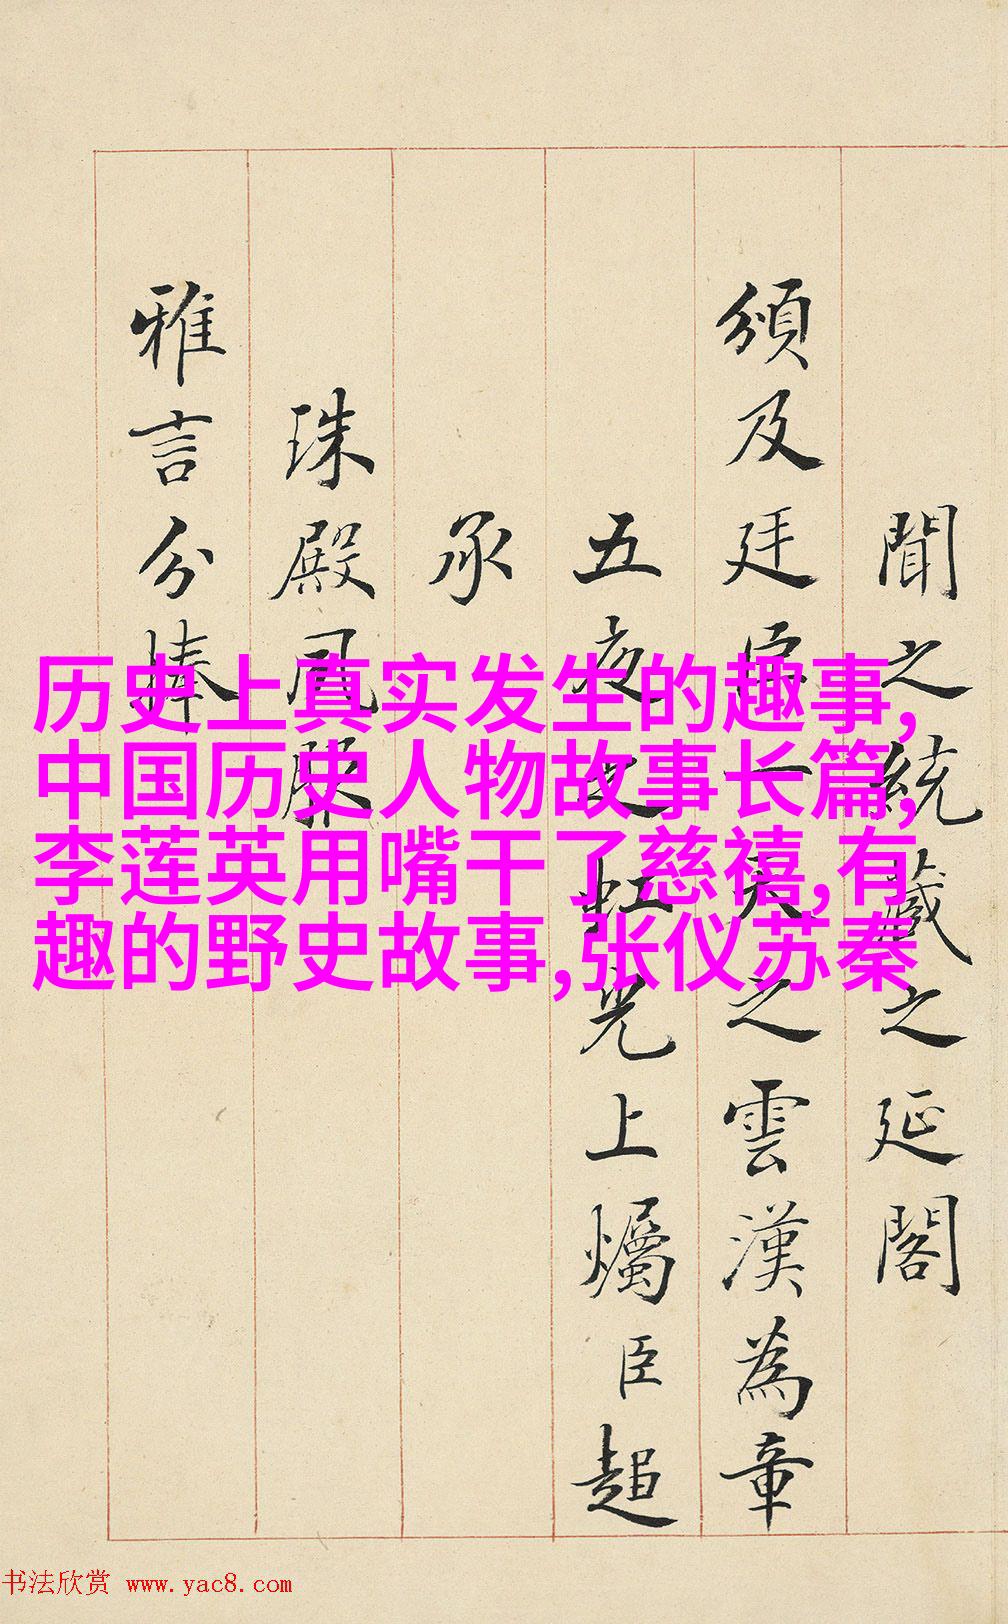 聞之統藏之延閣
頒及廷臣一天之雲漢為章
五夜之虹光上燭臣超
承
珠殿鳳
雅言分捧
历史上真实发生的趣事,
中国历史人物故事长篇,
李莲英用嘴干了慈禧,有
趣的野史故事,张仪苏秦
书法欣赏 www.yac8.com